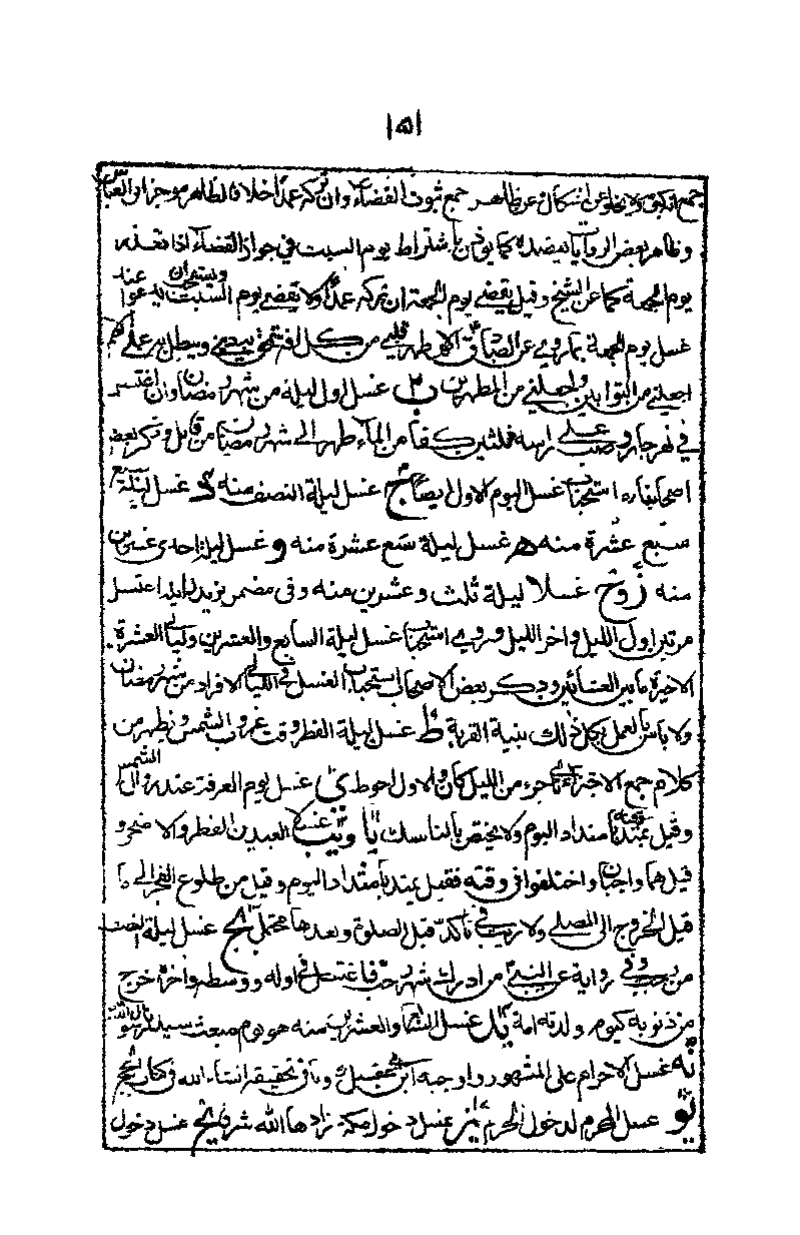 ١٥١
جمع انه لا يخلو عن اشكال عن ظاهر جمع ثبوت القضاء وان تركه عمدا خلافا لظاهر موجز ابن العباس
وظاهر بعض الروايات يعضده كما يؤذن باشتراط يوم السبت في جواز القضاء اذا تعذر
يوم الجمعة كما عن الشيخ وقيل يقضي يوم الجمعة ان تركه عمدا ولا يقضي يوم السبت ويستحب ان يدعو عند
غسل يوم الجمعة بما روي عن الصادق اللهم طهر قلبي من كل افة تمحق بها ديني وتبطل بها عملي اللهم
اجعلني من التوابين واجعلني من المتطهرين ب غسل اول ليلة من شهر رمضان وان اغتسل
في نهر جار وصب على راسه ثلثين كفا من الماء طهر الى شهر رمضان من قابل وذكر بعض
اصحابنا استحباب غسل اليوم الاول ايضا ج غسل ليلة النصف منه د غسل ليلة
سبع عشرة منه ه غسل ليلة تسع عشرة منه و غسل ليلة احدى عشرين
منه ز وح غسلا ليلة ثلث وعشرين منه وفي مضمر بريد رايته اغتسل
مرتين اول الليل واخر الليل وروي استحباب غسل ليلة السابع والعشرين وليالي العشرة
الاخيرة ما بين العشائين وذكر بعض الاصحاب استحباب الغسل في الليالي الافراد من شهر رمضان
ولا باس بالعمل بكل ذلك بنية القربة ط غسل ليلة الفطر وقت غروب الشمس ويظهر من
كلام جمع الاجتزاء باي جزء من الليل كان والاول احوط ي غسل يوم العرفة عند زوال الشمس
وقيل يمتد وقته بامتداد اليوم ولا يختص بالناسك يا ويب غسلا العيدين الفطر والاضحى و
قيل هما واجبان واختلفوا في وقته فقيل يمتد بامتداد اليوم وقيل من طلوع الفجر الى ما
قبل الخروج الى المصلى ولا ريب في تاكده قبل الصلوة وبعدها محتمل يج غسل ليلة النصف
من رجب وفي رواية عن النبي من ادرك شهر رجب فاغتسل في اوله ووسطه واخره خرج
من ذنوبه كيوم ولدته امه يد غسل السابع والعشرين منه هو يوم مبعث سيدنا رسول الله
يه غسل الاحرام على المشهور واوجبه ابن ابي عقيل وياتي تحقيقه انشاء الله في كتاب الحج
يو غسل المحرم لدخول الحرم يز غسل دخول مكة زادها الله شرفا يح غسل دخول